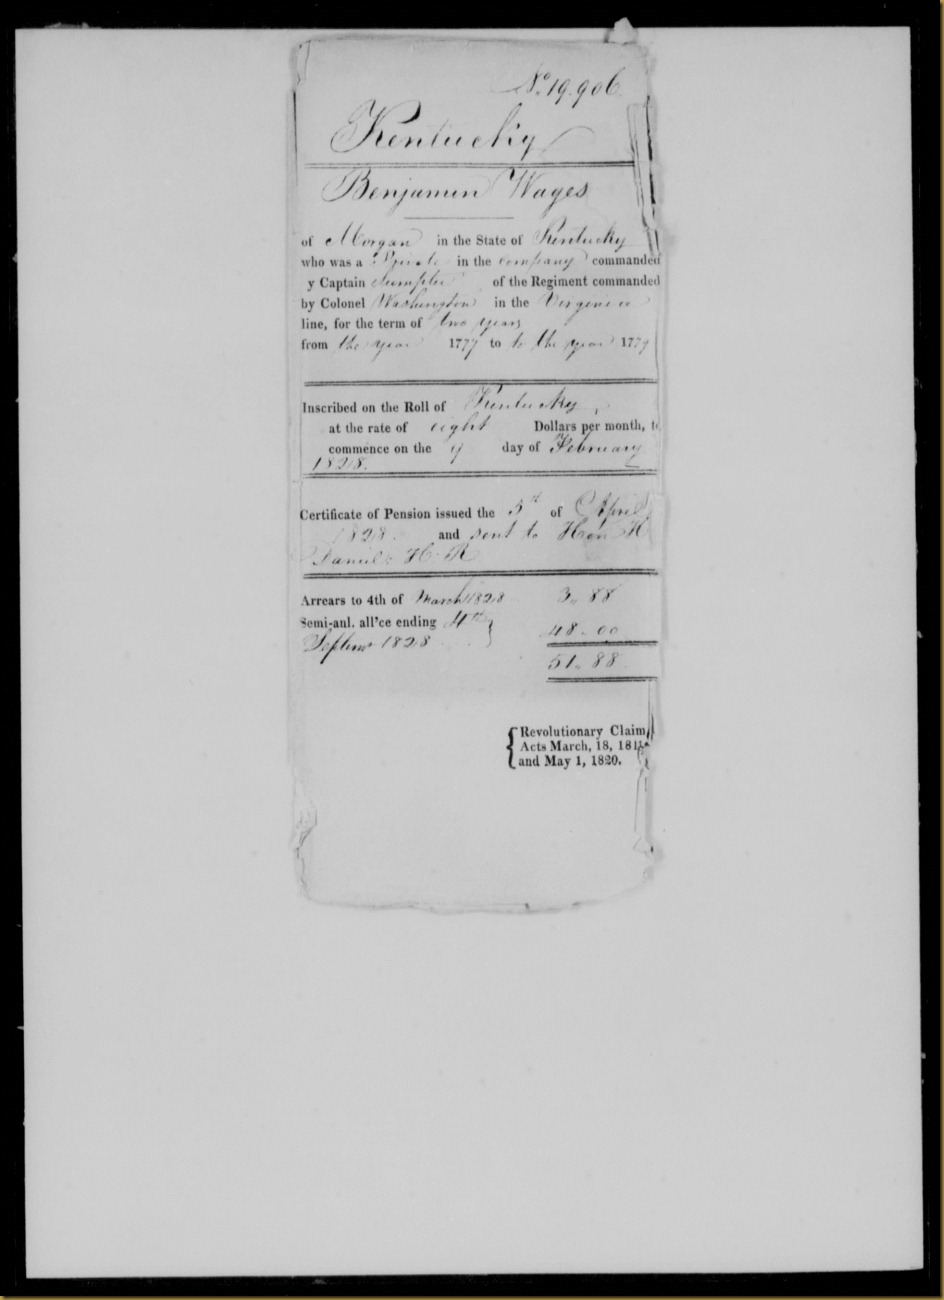 No. 19.906
Kentucky
Benjamin Wages
of Morgan in the State of Kentucky
who was a Private in the company commanded
y Captain Sumpter of the Regiment commanded
by Colonel Washington in the Virginia
line, for the term of two years
from the year 1777 to to the year 1779
Inscribed on the Roll of Kentucky
at the rate of eight Dollars per month, to
commence on the day of February
1828.
Certificate of Pension issued the 5th of April
1828 and sent to Hon H
Daniel H. R
Arrears to 4th of March 1828 3,, 88
Semi-anl. all'ce ending 4th
48. 00
Septemr 1828
51,, 88
Revolutionary Claim
Acts March, 18, 181
and May 1, 1820.